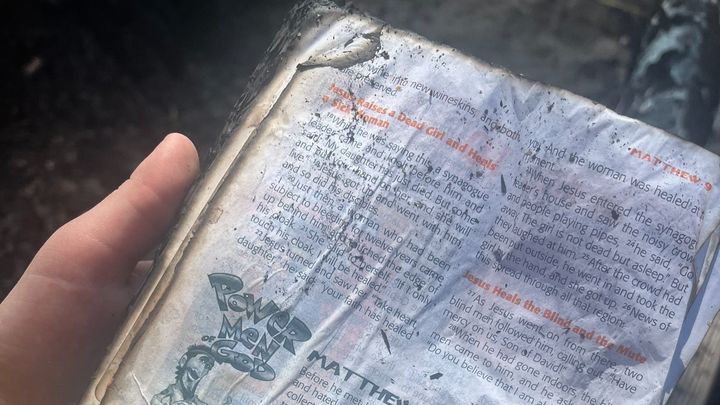 wine into new wineskins, and both
are preserved."
Jesus Raises a Dead Girl and Heals
a Sick Woman
18While he was saying this, a synagogue
leader came and knelt before him and
said, "My daughter has just died. But come
and put your hand on her, and she will
live." 19Jesus got up and went with him,
and so did his disciples.
20Just then a woman who had been
subject to bleeding for twelve years came
up behind him and touched the edge of
his cloak. 21She said to herself, "If I only
touch his cloak, I will be healed."
22Jesus turned and saw her. "Take heart,
daughter," he said, "your faith has healed
POWER
MEN
OF
GOD
MATTHEW
Before he met
and hated
collect
MATTHEW 9
you." And the woman was healed at
moment.
23When Jesus entered the synagog
leader's house and saw the noisy crow
and people playing pipes, 24he said, "Go
away. The girl is not dead but asleep." But
they laughed at him. 25After the crowd had
been put outside, he went in and took the
girl by the hand, and she got up. 26News of
this spread through all that region.
Jesus Heals the Blind and the Mute
27As Jesus went on from there, two
blind men followed him, calling out, "Have
mercy on us, Son of David!"
28When he had gone indoors, the bli
men came to him, and he aske
"Do you believe that I am a